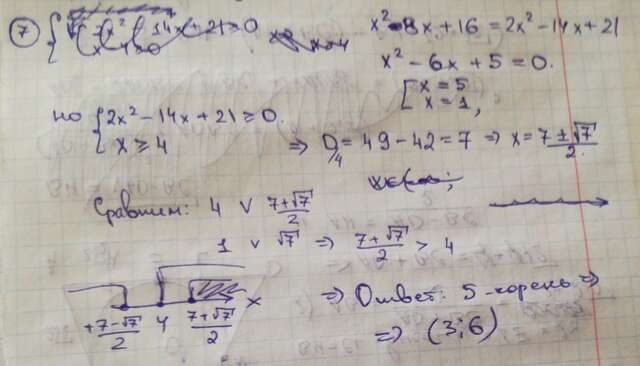 7
x² - 8x + 16 = 2x² - 14x + 21
x² - 6x + 5 = 0.
[ x = 5
x = 1,
но { 2x² - 14x + 21 ≥ 0.
x ≥ 4
⇒ D/4 = 49 - 42 = 7 ⇒ x = (7 ± √7)/2.
Сравним: 4 ∨ (7+√7)/2
1 ∨ √7 ⇒ (7+√7)/2 > 4
+7-√7/2 4 7+√7/2 x
⇒ Ответ: 5 - корень ⇒
⇒ (3; 6)